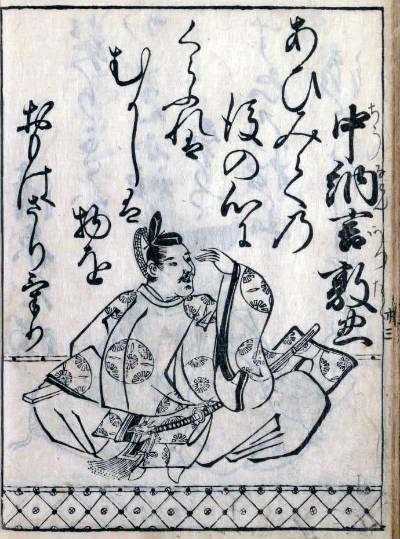 中納言敦忠
あひみての
後の心に
くらふれは
むかしは
物を
おもはさりけり